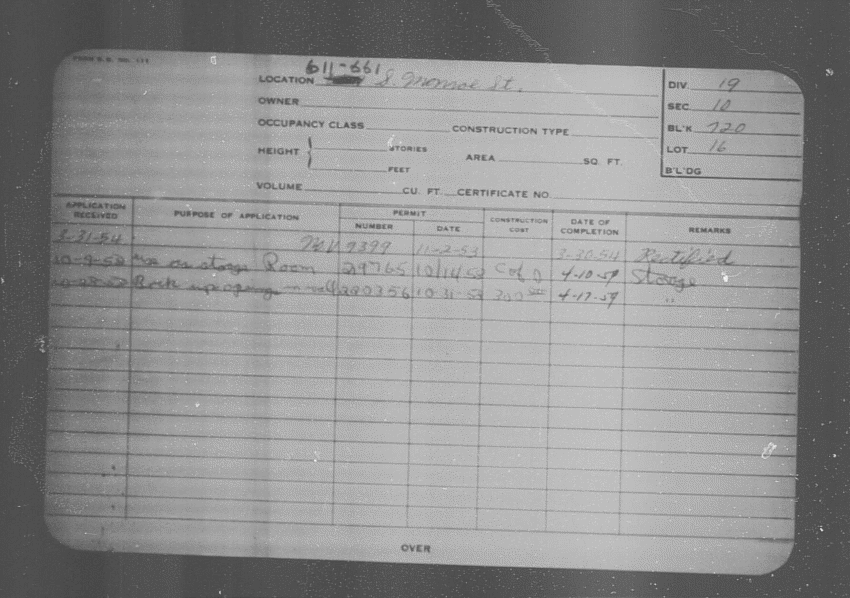 FORM B. B. NO. 171
611-661
LOCATION S. Monroe St. DIV 19
OWNER SEC 10
OCCUPANCY CLASS CONSTRUCTION TYPE BL'K 720
HEIGHT { STORIES AREA SQ. FT. LOT 16
FEET B'L'DG
VOLUME CU. FT. CERTIFICATE NO.
APPLICATION RECEIVED PURPOSE OF APPLICATION PERMIT NUMBER DATE CONSTRUCTION COST DATE OF COMPLETION REMARKS
3-31-54 9399 11-2-53 3-30-54 Rectified
10-9-58 Use as storage Room 29765 10/14/58 C of O 4-10-59 Storage
10-28-58 opening in wall 220356 10-31-58 300 4-17-59 "
OVER